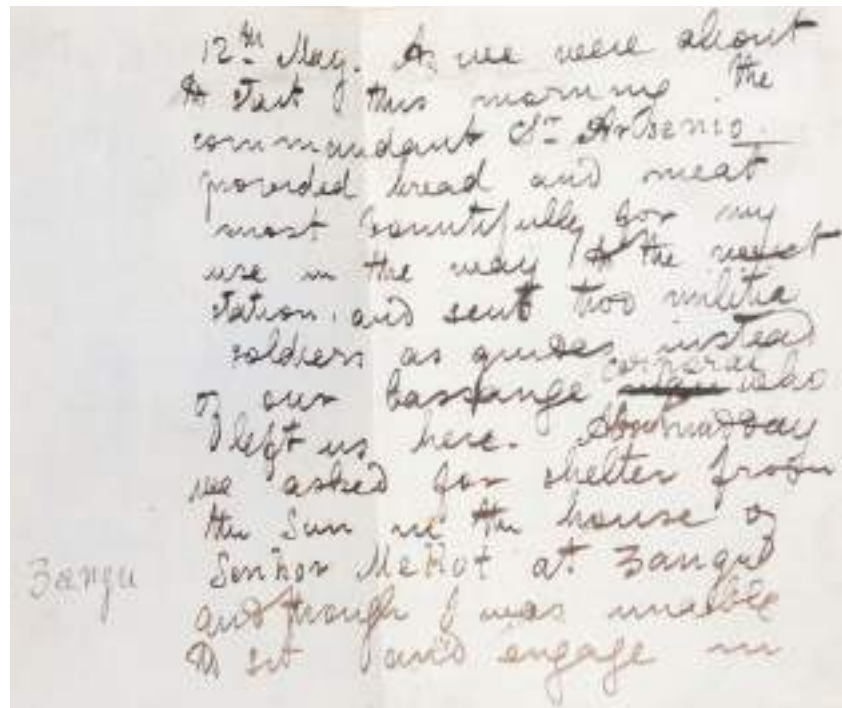 12th May. As we were about
to start this morning the
commandant Sr. Arsenio
provided bread and meat
most bountifully for my
use in the way to the next
station. and sent two militia
soldiers as guides instead
of our Cassange corporal who
left us here. About midday
we asked for shelter from
the Sun in the house of
Senhor Mellot at Zangu
and though I was unable
to sit and engage in
Zangu